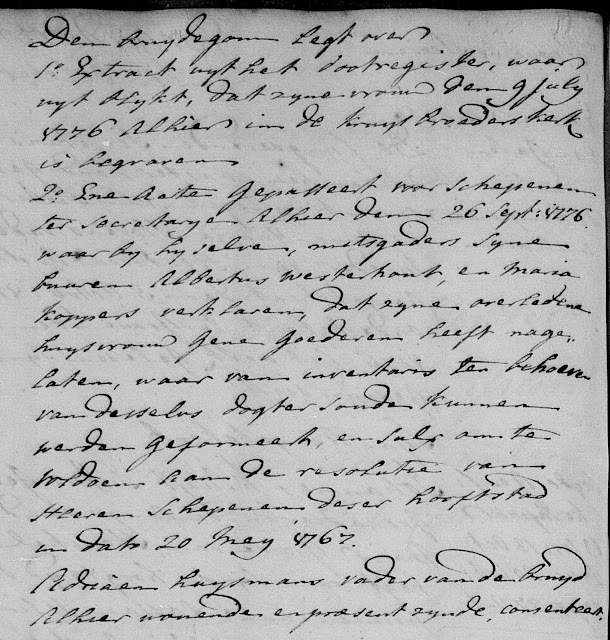 Den bruydegom legt over
1o Extract uyt het dootregister, waar
uyt blykt, dat zyne vrouw den 9 July
1776 alhier in de Kruysbroederskerk
is begraven
2o Ene acte gepasseert voor schepenen
ter secretarye alhier den 26 Sept: 1776.
waar by hy selve, mitsgaders syne
buuren Albertus Westerhout, en Maria
Koppers verklaren, dat zyne overledene
huysvrouw gene goederen heeft nage-
laten, waar van inventaris ten behoeve
van desselvs dogter soude kunnen
werden geformeert, en sulx om te
voldoen aan de resolutie van
Heeren Schepenen deser Hooftstad
in dato 20 Mey 1767.
Adriaen Huysmans vader van de bruyd
alhier wonende en præsent zynde, consenteert.